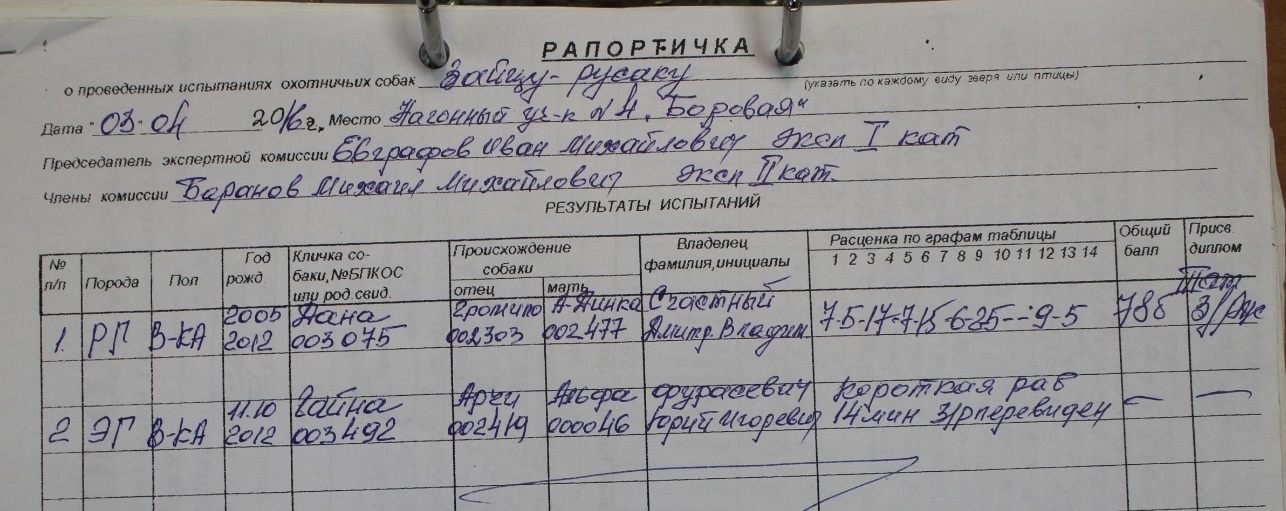 РАПОРТИЧКА
о проведенных испытаниях охотничьих собак Зайцу-русаку
(указать по каждому виду зверя или птицы)
Дата "03-04 2016г. Место Нагонный уч-к №4 „Боровая“
Председатель экспертной комиссии Евграфов Иван Михайлович эксп I кат
Члены комиссии Баранов Михаил Михайлович эксп II кат.
РЕЗУЛЬТАТЫ ИСПЫТАНИЙ
№ п/п Порода Пол Год рожд. Кличка собаки,№БПКОС или род.свид. Происхождение собаки отец мать Владелец фамилия,инициалы Расценка по графам таблицы 1 2 3 4 5 6 7 8 9 10 11 12 13 14 Общий балл Присв. диплом
2005 Дана Громило А-Динка Счастный
1. РГ В-КА 2012 003075 002303 002477 Дмитр. Владим 7-5-17-7-15-6-25--9-5 78б 3/рус
11.10 Гайна Арчи Альфа Фурасевич Короткая раб
2 ЭГ В-КА 2012 003492 002419 000046 Юрий Игоревич 14мин з/р перевиден — —